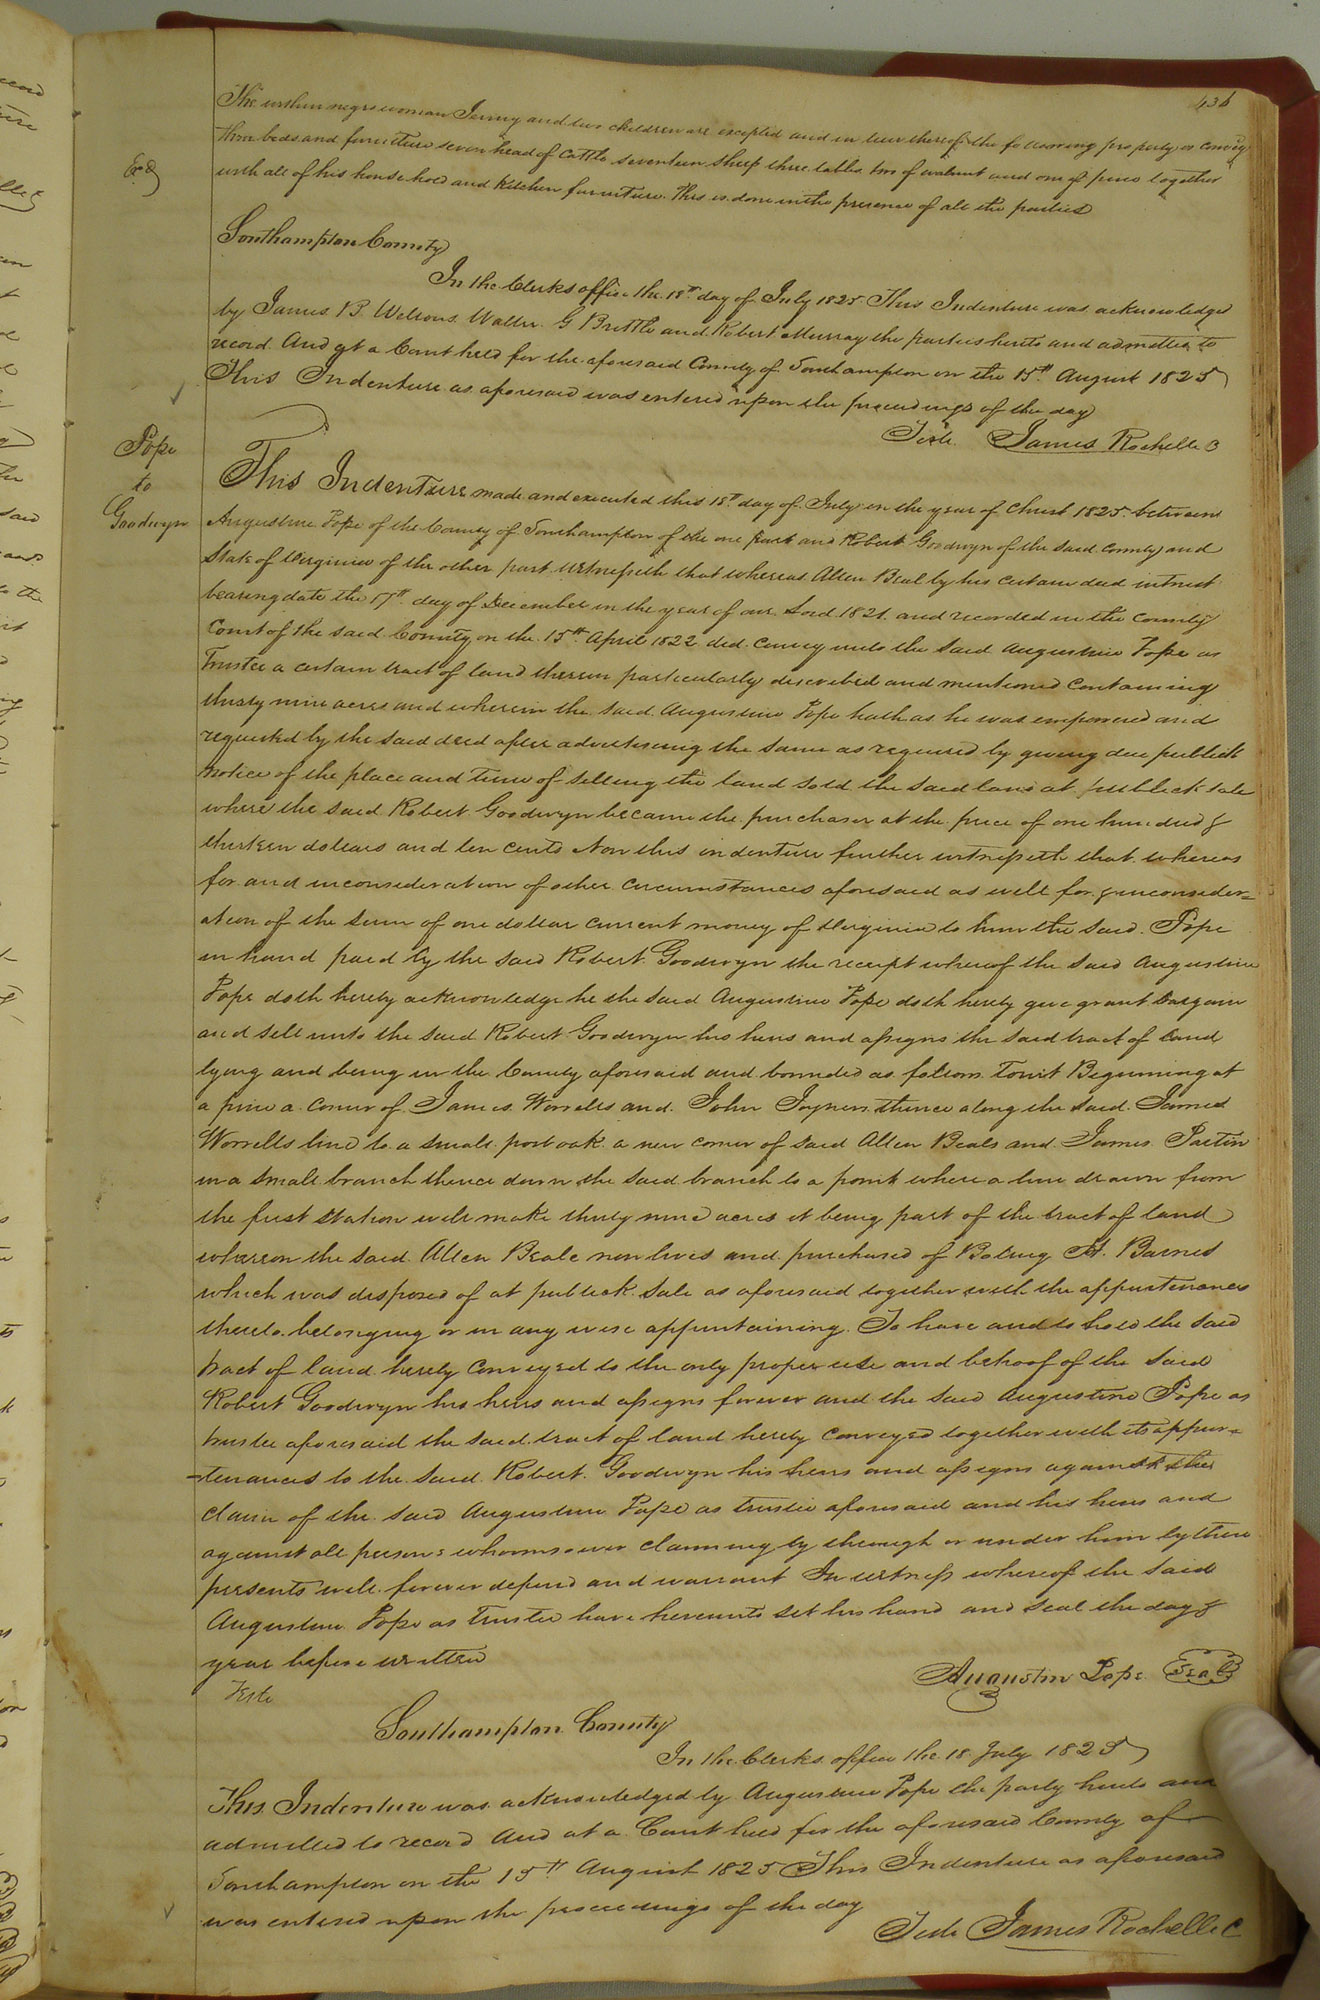 434
The within negro woman Jenny and two children are excepted and in lieu thereof the following property is convey
three beds and furniture seven head of Cattle seventeen Sheep three tables two of walnut and one of pine together
with all of his household and kitchen furniture. This is done in the presence of all the parties
Exd
Southampton County
In the Clerks office the 18th day of July 1825 This Indenture was acknowledged
by James B. Wellons Walter G Brittle and Robert Murray the parties hereto and admitted to
record. And at a Court held for the aforesaid County of Southampton on the 15th August 1825
This Indenture as aforesaid was entered upon the proceedings of the day
Teste. James Rochelle C
Pope
to
Goodwyn
This Indenture made and executed this 18th day of July in the year of Christ 1825. between
Augustine Pope of the County of Southampton of the one part and Robert Goodwyn of the said County and
State of Virginia of the other part witnesseth that whereas Allen Beal by his certain deed intrust
bearing date the 17th day of December in the year of our Lord 1821. and recorded in the county
Court of the said County on the 15th April 1822 did convey unto the said Augustine Pope as
Trustee a certain tract of land therein particularly described and mentioned containing
thirty nine acres and wherein the said Augustine Pope hath as he was empowered and
requested by the said deed after advertising the same as required by giving due publick
notice of the place and time of selling the land sold the said land at publick sale
where the said Robert Goodwyn became the purchaser at the price of one hundred &
thirteen dollars and ten cents Now this indenture further witnesseth that whereas
for and inconsideration of other circumstances aforesaid as well for & inconsider=
ation of the sum of one dollar current money of Virginia to him the said Pope
in hand paid by the said Robert Goodwyn the receipt whereof the said Augustine
Pope doth hereby acknowledge he the said Augustine Pope doth hereby give grant bargain
and sell unto the said Robert Goodwyn his heirs and assigns the said tract of land
lying and being in the County aforesaid and bounded as follows Towit Beginning at
a pine a corner of James Worrells and John Joyners thence along the said James
Worrells line to a small post oak a new corner of said Allen Beals and James Partin
in a small branch thence down the said branch to a point where a line drawn from
the first station will make thirty nine acres it being part of the tract of land
whereon the said Allen Beale now lives and purchased of Boling H. Barnes
which was disposed of at publick sale as aforesaid together with the appurtenances
thereto belonging or in any wise appurtaining. To have and to hold the said
tract of land hereby conveyed to the only proper use and behoof of the said
Robert Goodwyn his heirs and assigns forever and the said Augustine Pope as
trustee aforesaid the said tract of land hereby conveyed together with its appur=
=tenances to the said Robert Goodwyn his heirs and assigns against the
claim of the said Augustine Pope as trustee aforesaid and his heirs and
against all persons whomsoever claiming by through or under him by these
presents will forever defend and warrant In witness whereof the said
Augustine Pope as Trustee have hereunto set his hand and seal the day &
year before written
Augustin Pope Seal
Teste
Southampton County
In the Clerks office the 18 July 1825
This Indenture was acknowledged by Augustine Pope the party hereto and
admitted to record And at a Court held for the aforesaid County of
Southampton on the 15th August 1825 This Indenture as aforesaid
was entered upon the proceedings of the day
Teste James Rochelle C